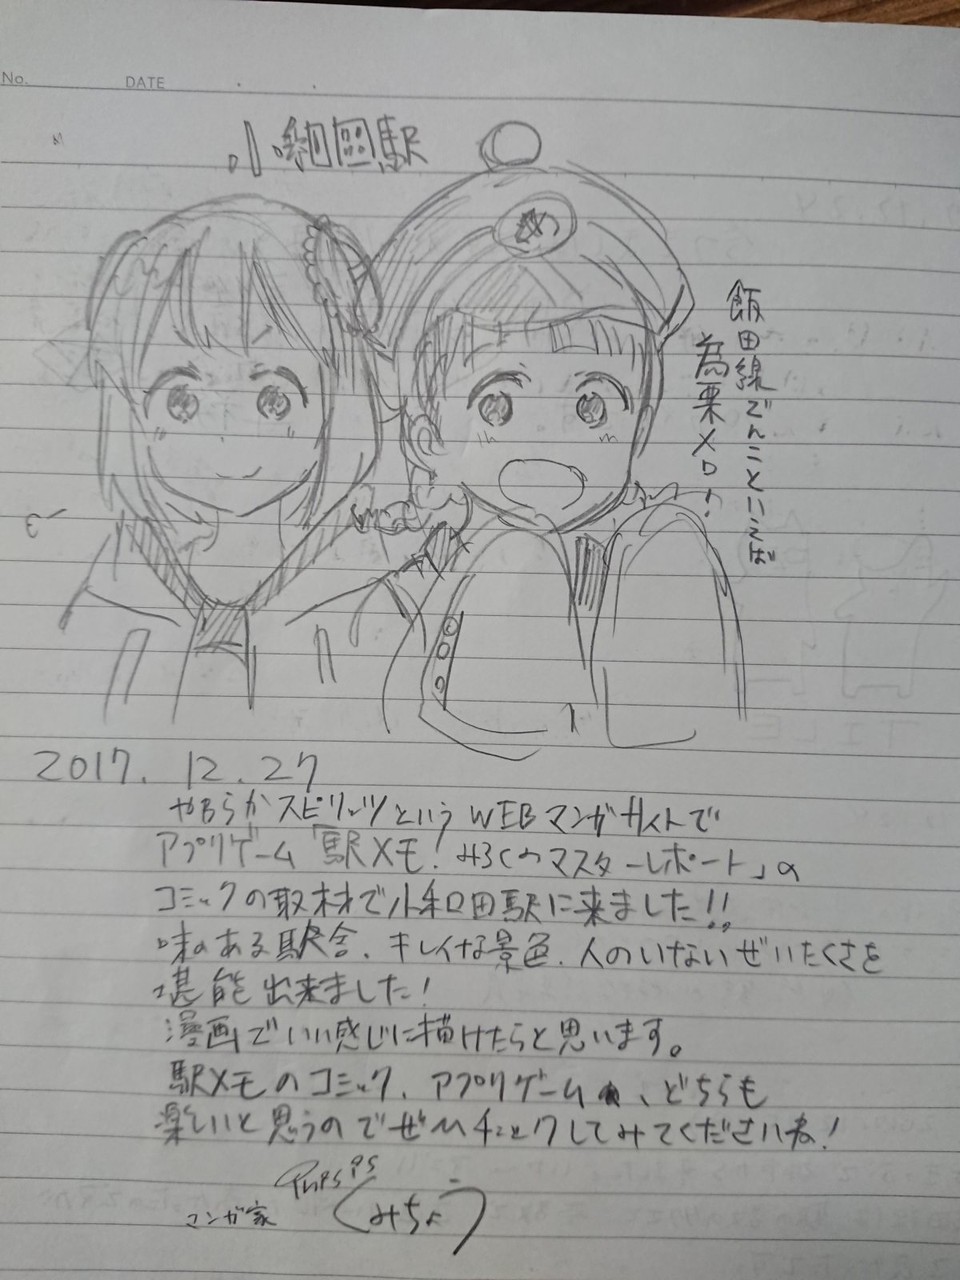 No.
DATE
小和田駅
飯田線でんこといえば
為栗メロ!
2017. 12. 27
やわらかスピリッツというWEBマンガサイトで
アプリゲーム「駅メモ! みろくのマスターレポート」の
コミックの取材で小和田駅に来ました!!
味のある駅舎、キレイな景色、人のいないぜいたくさを
堪能出来ました!
漫画でいい感じに描けたらと思います。
駅メモのコミック、アプリゲーム、どちらも
楽しいと思うのでぜひチェックしてみてくださいね!
マンガ家